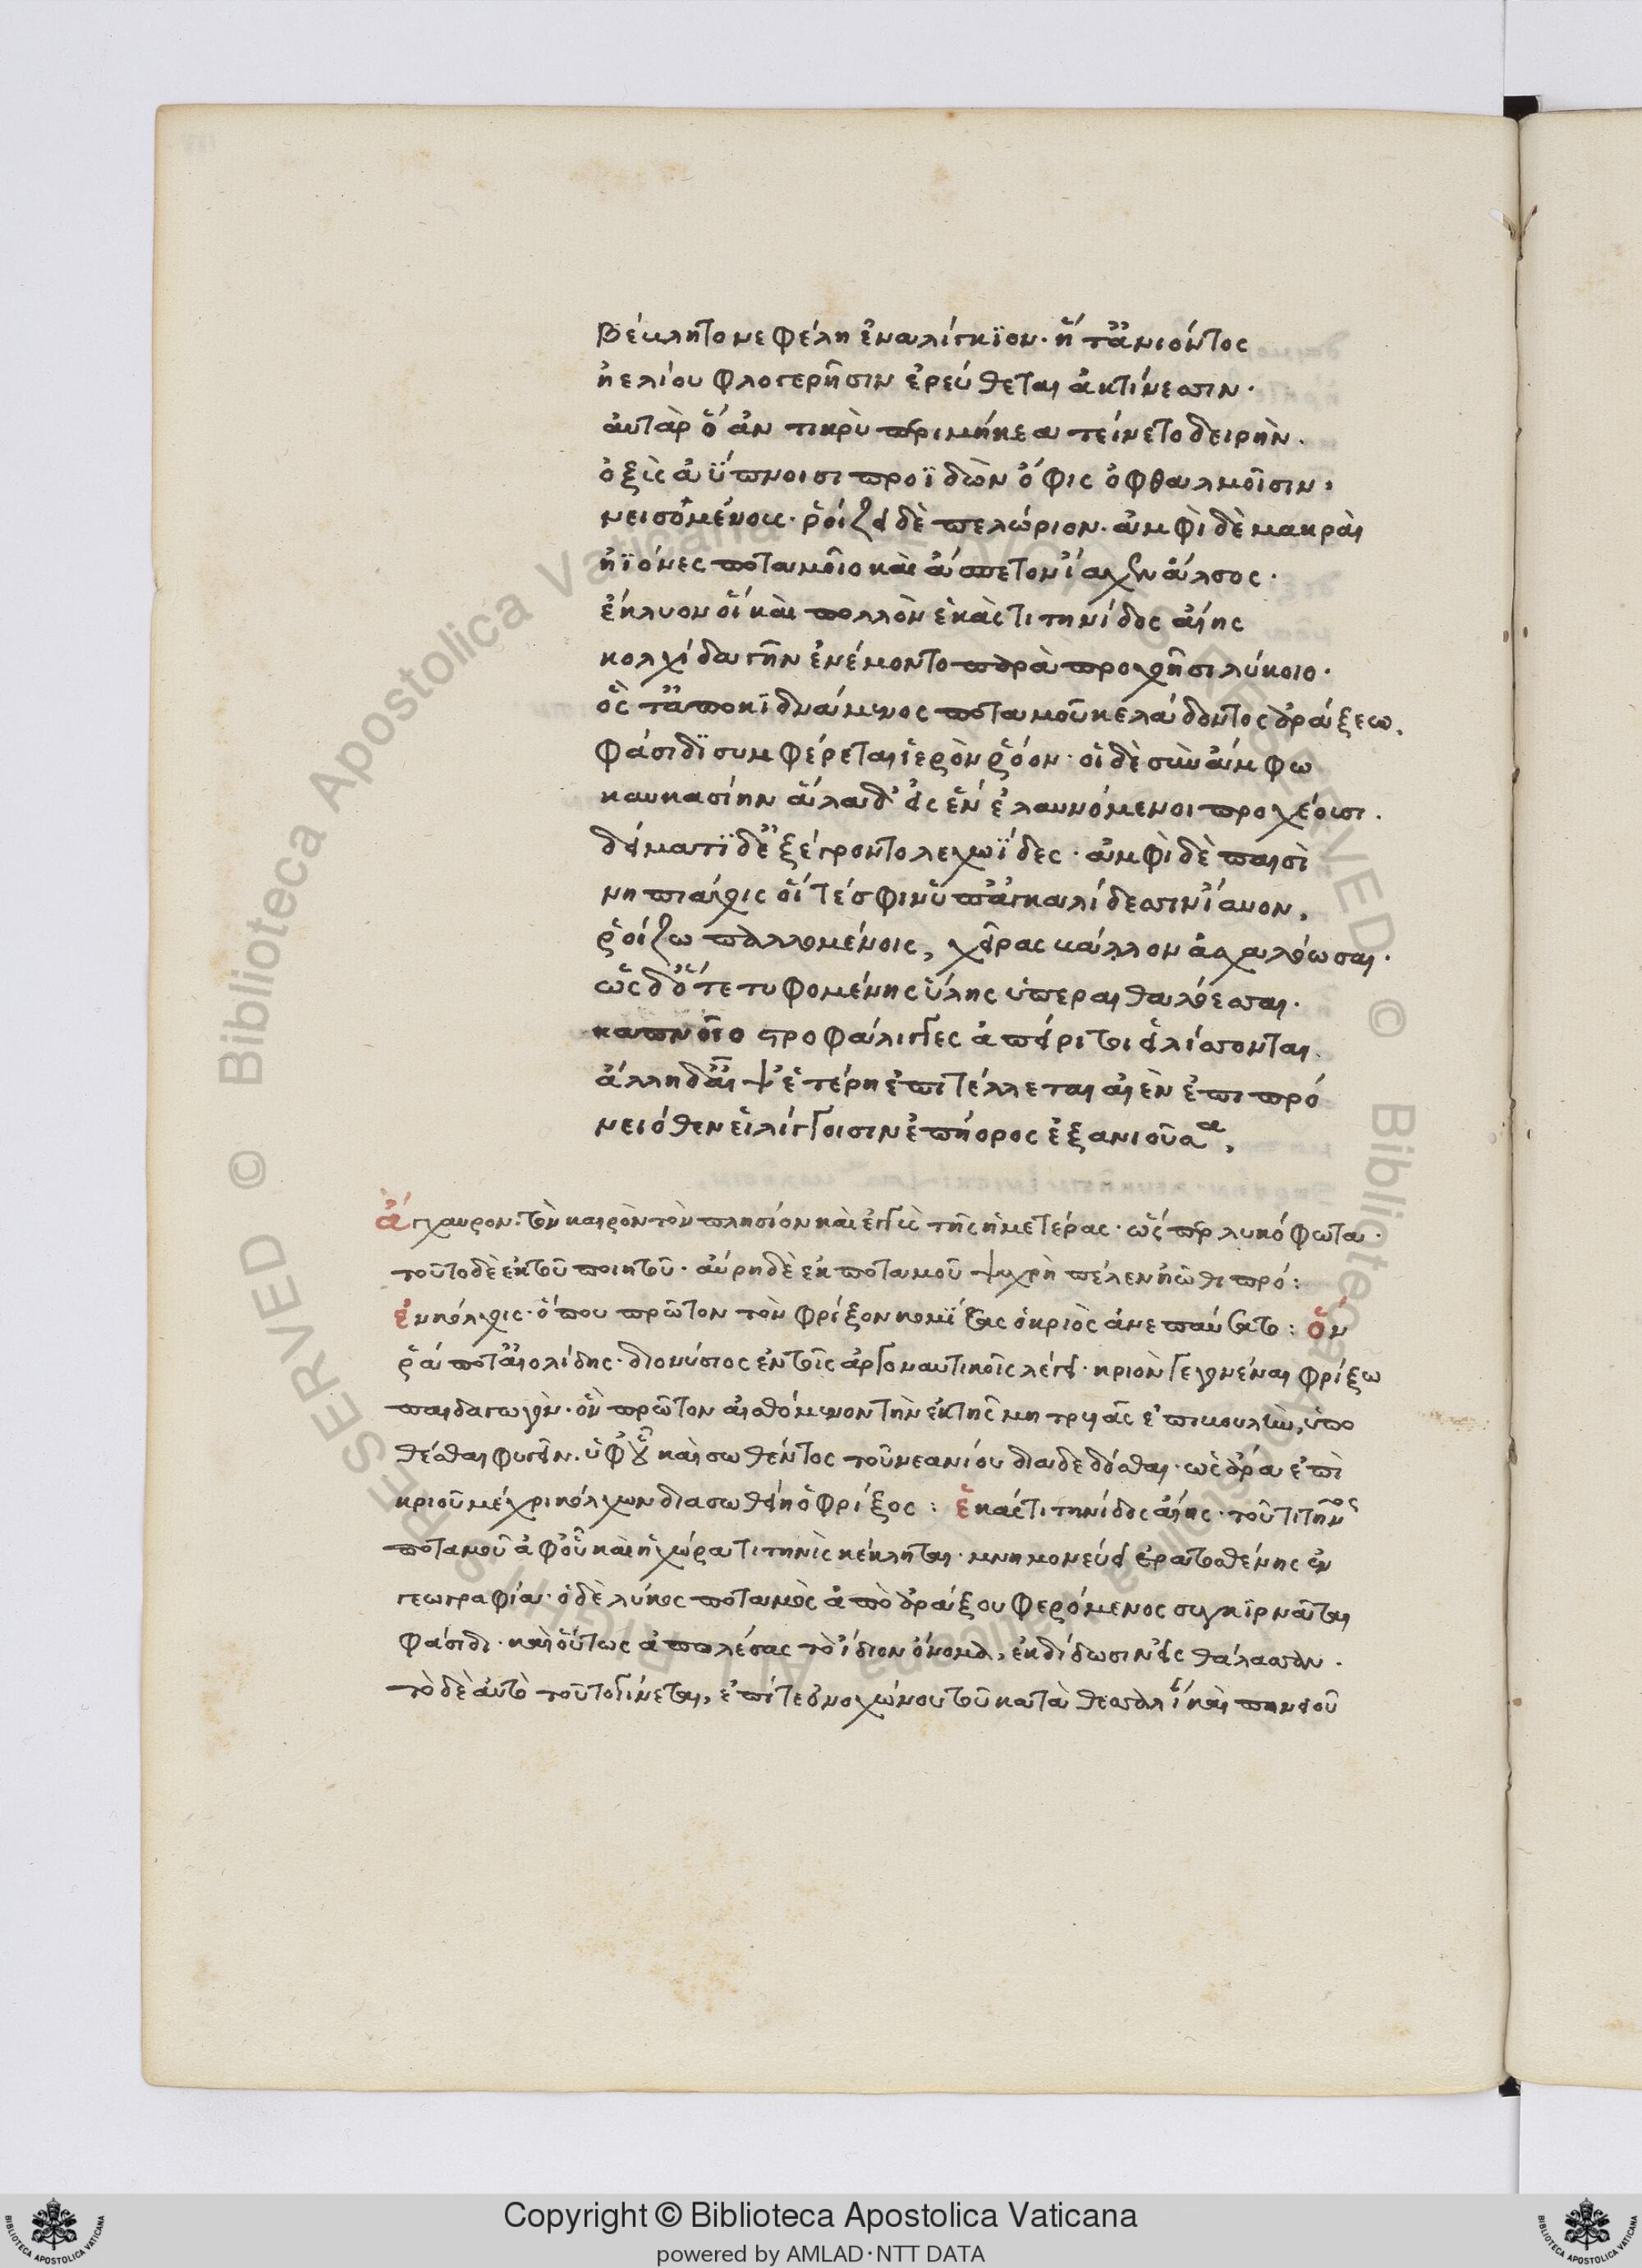 βέβλητο νεφέλη ἐναλίγκιον. ἥ τ' ἀνιόντος
ἠελίου φλογερῆσιν ἐρεύθεται ἀκτίνεσσιν.
αὐτὰρ ὅ ἀντικρὺ περιμήκεα τείνετο δειρὴν.
ὀξὺς ἀΰπνοισι προϊδὼν ὄφις ὀφθαλμοῖσιν,
νεισομένους. ῥοίζει δὲ πελώριον. ἀμφὶ δὲ μακραὶ
ἠϊόνες ποταμοῖο καὶ ἄσπετον ἴαχεν ἄλσος.
ἔκλυον οἵ καὶ πολλὸν ἑκὰς τιτηνίδος αἴης
κολχίδα γῆν ἐνέμοντο παρὰ προχοῇσι λύκοιο.
ὅς τ' ἀποκιδνάμενος ποταμοῦ κελάδοντος ἀράξεω.
φάσιδι συμφέρεται ἱερὸν ῥόον. οἱ δὲ σὺν ἄμφω
καυκασίην ἅλαδ' εἰς ἓν ἐλαυνόμενοι προχέουσι.
δείματι δ' ἐξέγροντο λεχωΐδες. ἀμφὶ δὲ παισὶ
νηπιάχοις οἵ τέ σφιν ὑπ' ἀγκαλίδεσσιν ἴαυον,
ῥοίζω παλλομένοις, χεῖρας βάλλον ἀσχαλόωσαι.
ὡς δ' ὅτε τυφομένης ὕλης ὑπὲρ αἰθαλόεσσαι.
καπνοῖο στροφάλιγγες ἀπείριτοι εἱλίσσονται.
ἄλλη δ' αἶψ' ἑτέρη ἐπιτέλλεται αἰὲν ἐπιπρό
νειόθεν εἰλίγγοισιν ἐπήορος ἐξανιοῦσα,
ἄγχαυρον. τὸν καιρὸν τὸν πλησίον καὶ ἐγγὺς τῆς ἡμετέρας. ὡσπερ λυκόφωτα.
τοῦτο δὲ ἐκ τοῦ ποιητοῦ. αὔρη δὲ ἐκ ποταμοῦ ψυχρὴ πέλεν ἠῶθι πρό:
ἐν κόλχοις. ὅπου πρῶτον τὸν φρίξον κομίσας ὁ κριὸς ἀνεπαύσατο: ὅν
ῥά ποτ' αἰολίδης. διονύσιος ἐν τοῖς ἀργοναυτικοῖς λέγει. κριὸν γεγονέναι φρίξω
παιδαγωγὸν. ὃν πρῶτον αἰσθόμενον τὴν ἐκ τῆς μητρυιᾶς ἐπιβουλὴν, ὑπο
θέσθαι φυγεῖν. ὑφ' οὗ καὶ σωθέντος τοῦ νεανίου διαδεδόσθαι. ὡς ἄρα ἐπὶ
κριοῦ μέχρι κόλχων διασωθείη ὁ φρίξος: ἑκὰς τιτηνίδος αἴης. τοῦ τιτῆνος
ποταμοῦ ἀφ' οὗ καὶ ἡ χώρα τιτηνὶς κέκληται. μνημονεύει ἐρατοσθένης ἐν
γεωγραφία. ὁ δὲ λύκος ποταμὸς ἀπὸ ἀράξου φερόμενος συγκιρνᾶται
φάσιδι. καὶ οὕτως ἀπολέσας τὸ ἴδιον ὄνομα, ἐκδίδωσιν εἰς θάλασσαν.
τὸ δὲ αὐτὸ τοῦτο γίνεται, ἐπί τε ὀνοχώνου τοῦ κατὰ θεσσαλί καὶ πηνειοῦ
Copyright © Biblioteca Apostolica Vaticana
powered by AMLAD·NTT DATA